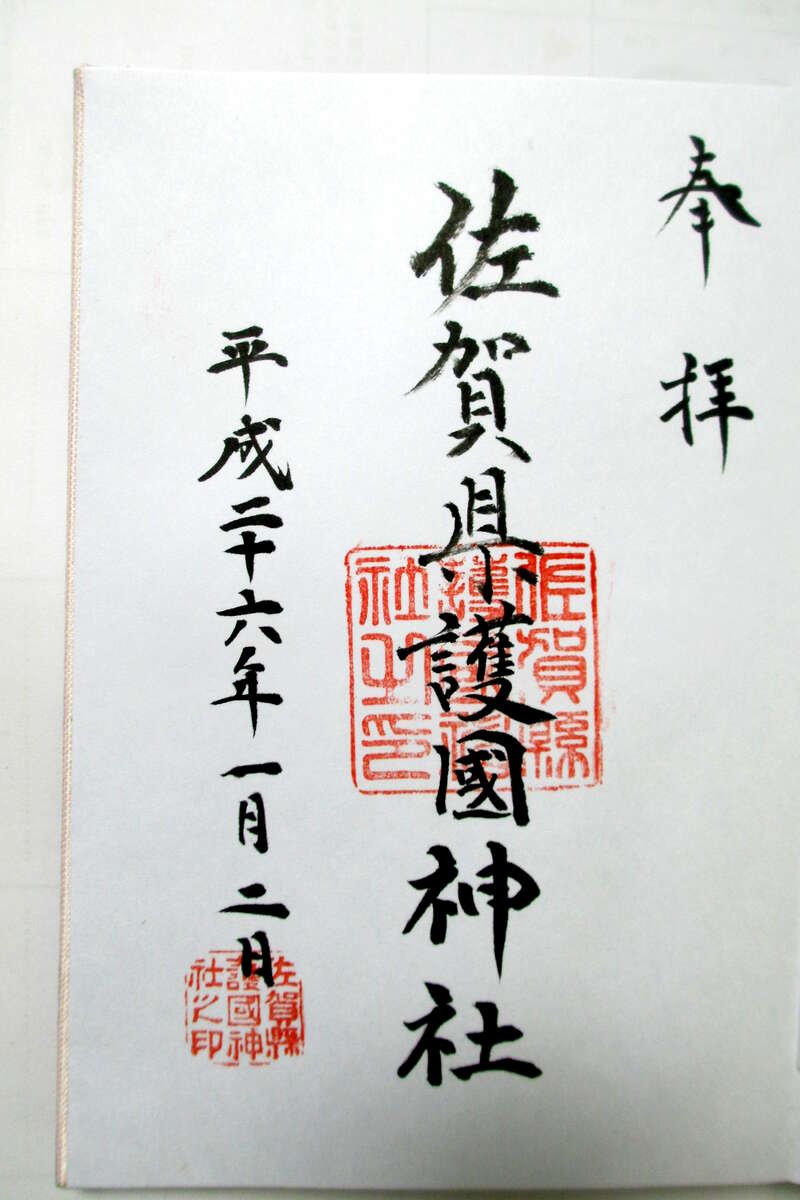 奉拝
佐賀県護國神社
佐賀縣護國神社之印
平成二十六年一月二日
佐賀縣護國神社之印